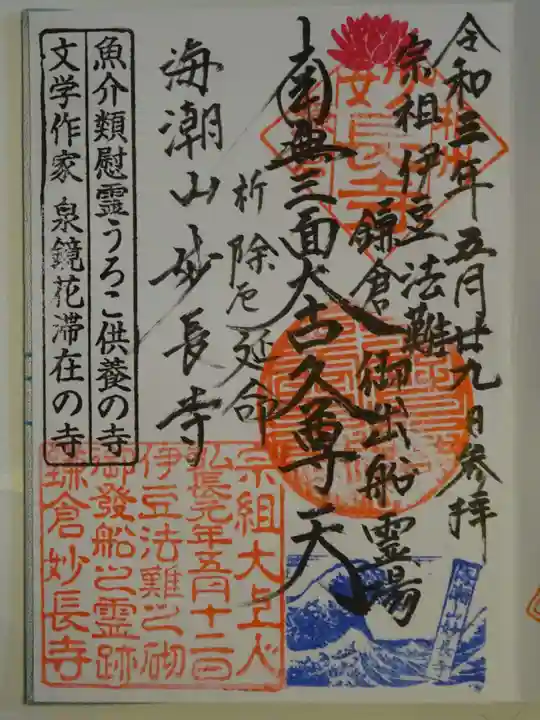 令和三年五月廿九日参拝
宗祖伊豆法難
鎌倉御出船霊場
南無三面大古久尊天
祈除厄延命
海潮山妙長寺
魚介類慰霊うろこ供養の寺
文学作家 泉鏡花滞在の寺
宗祖大上人
弘長元年五月十二日
伊豆法難之砌
御發船之霊跡
鎌倉妙長寺
妙長寺